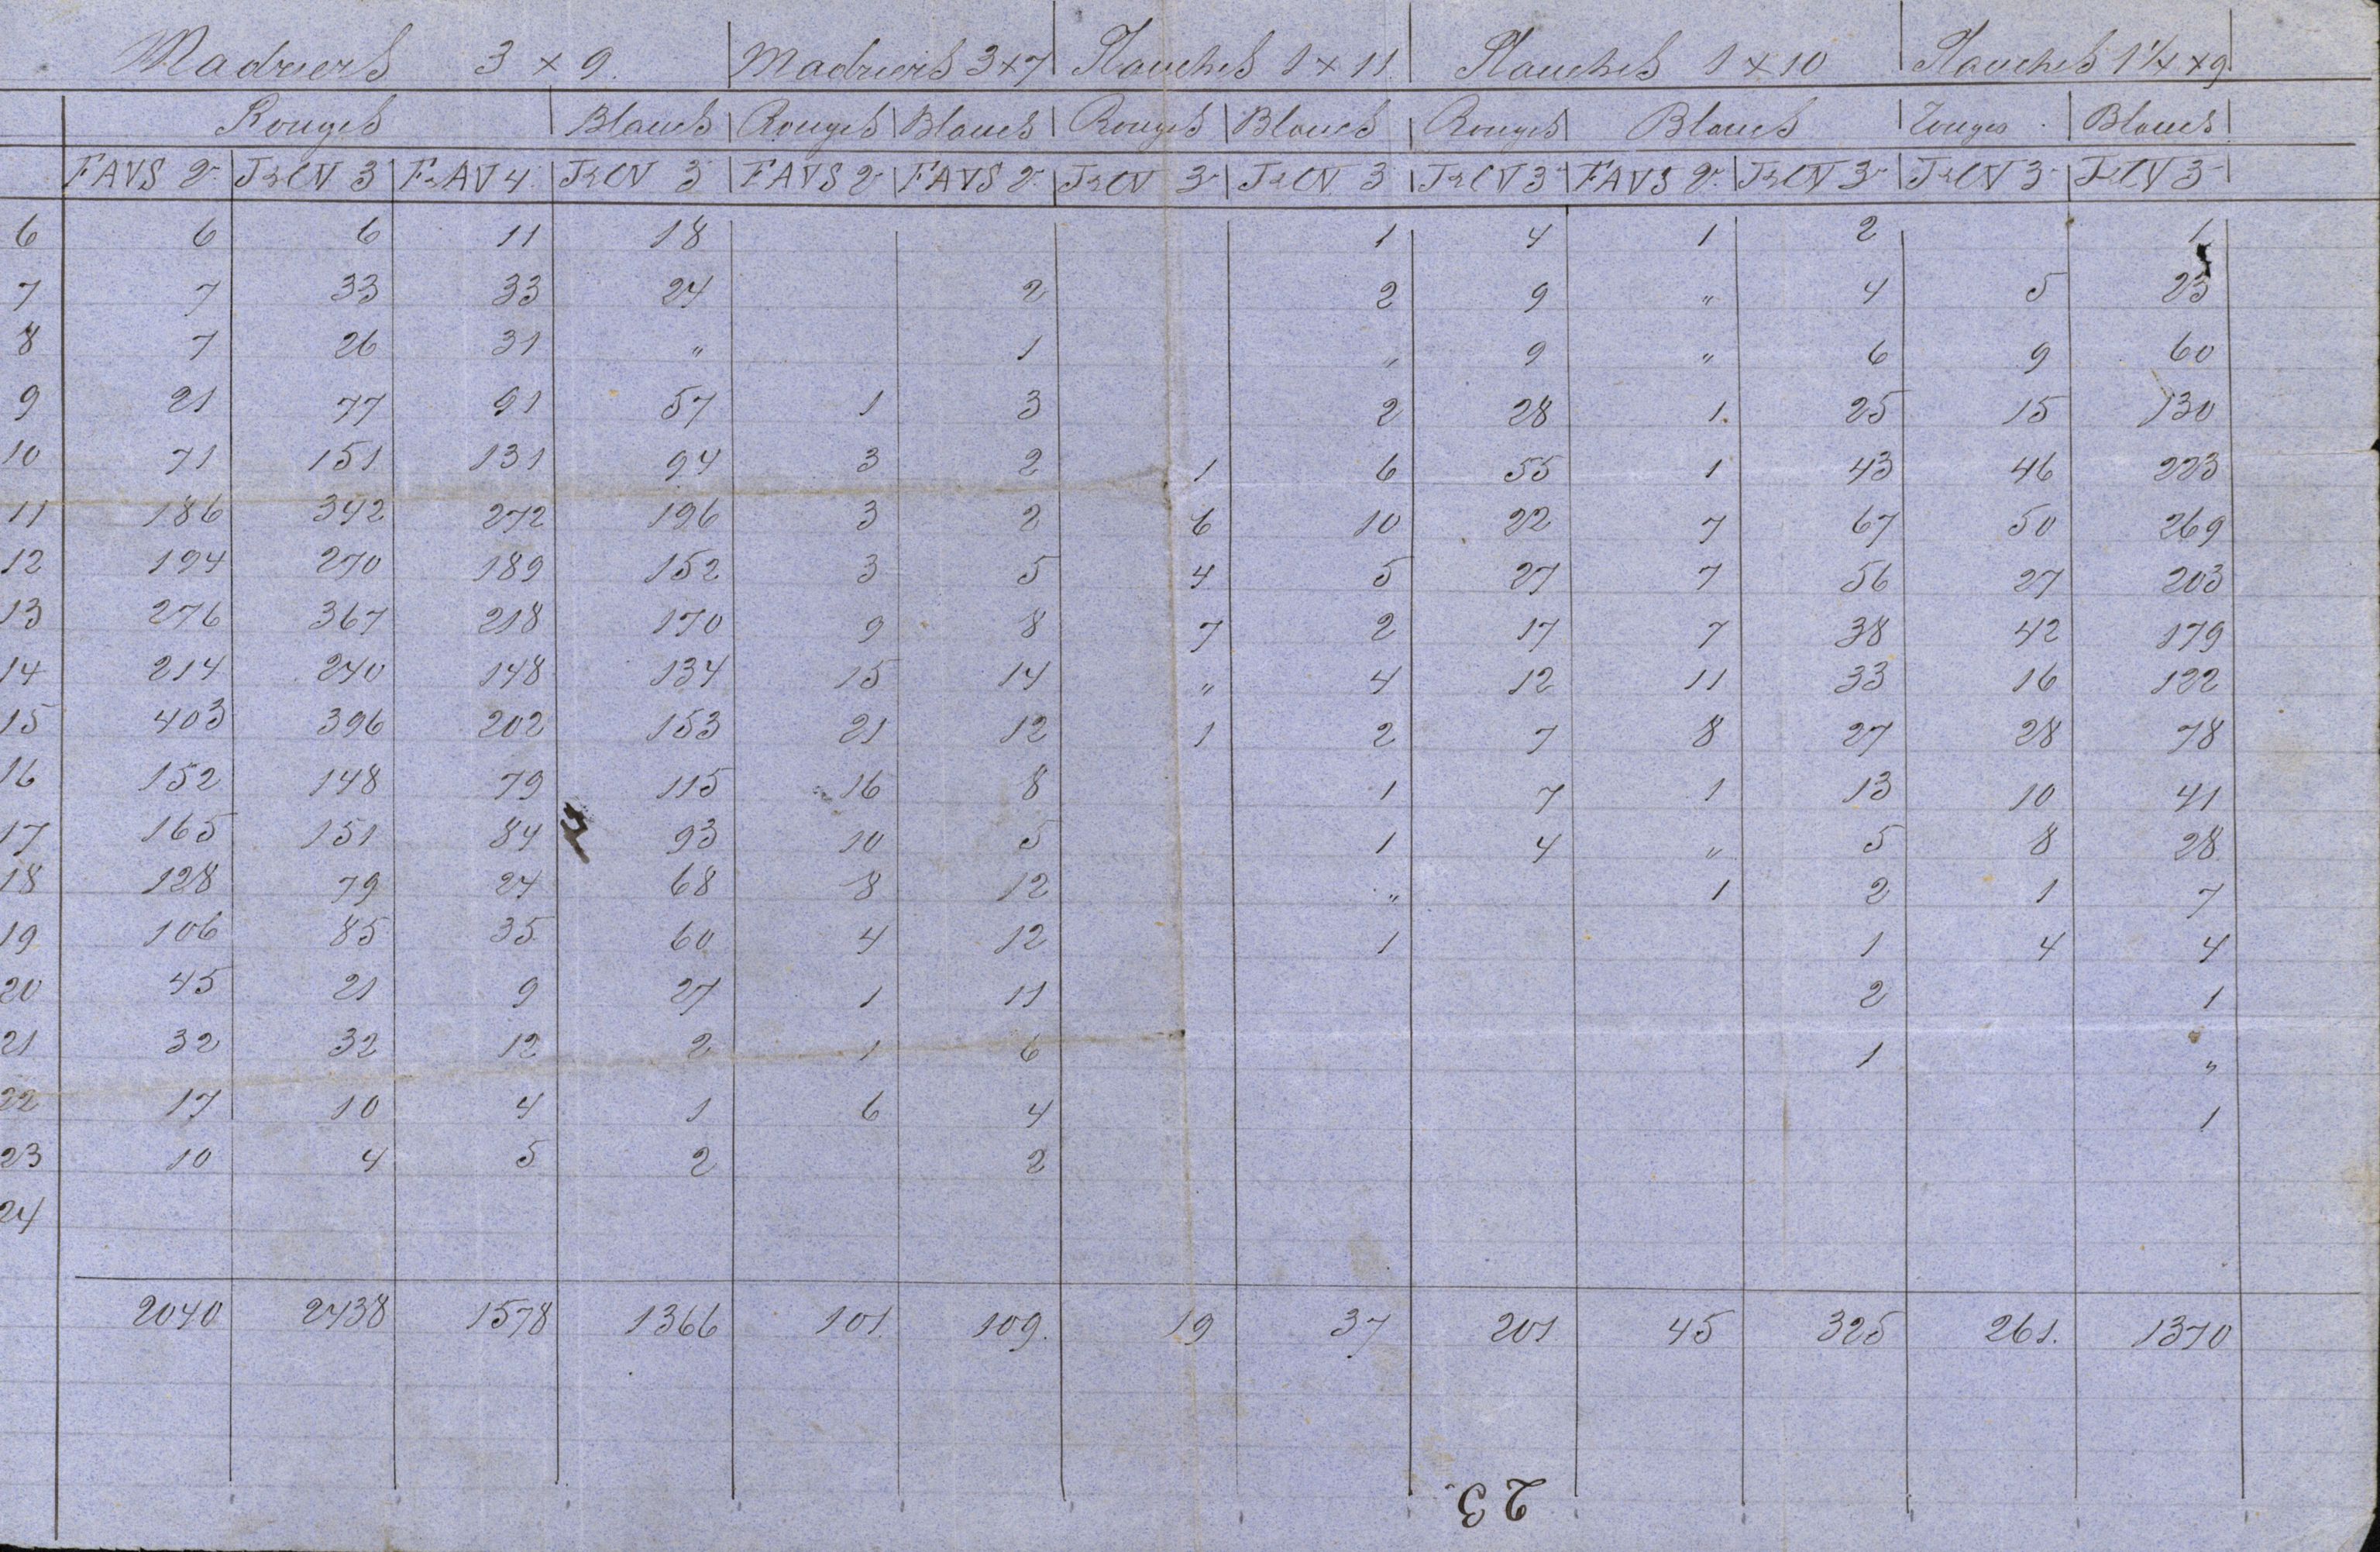 Madriers 3 × 9. Madriers 3×7 Planches 1 × 11. Planches 1 × 10 Planches 1 1/4 × 9
Rouges Blancs Rouges Blancs Rouges Blancs Rouges Blancs Rouges Blancs
FAVS 2 JrCN 3 FrAV 4 JrCN 3 FAVS 2 FAVS 2 JrCN 3 JrCN 3 JrCN 3 FAVS 2 JrCN 3 JrCN 3 JrCN 3
6 6 6 11 18 1 4 1 2 1
7 7 33 33 24 2 2 9 " 4 5 23
8 7 26 31 " 1 " 9 " 6 9 60
9 21 77 91 57 1 3 2 28 1 25 15 130
10 71 151 131 94 3 2 1 6 55 1 43 46 223
11 186 342 272 196 3 2 6 10 22 7 67 50 269
12 194 270 189 152 3 5 4 5 27 7 56 27 203
13 276 367 218 170 9 8 7 2 17 7 38 42 179
14 214 240 148 134 15 14 " 4 12 11 33 16 122
15 403 396 202 153 21 12 1 2 7 8 27 28 78
16 152 148 79 115 16 8 1 7 1 13 10 41
17 165 151 84 93 10 5 1 4 " 5 8 28
18 128 79 24 68 8 12 " 1 2 1 7
19 106 85 35 60 4 12 1 1 4 4
20 45 21 9 27 1 11 2 1
21 32 32 12 2 1 6 1 "
22 17 10 4 1 6 4 1
23 10 4 5 2 2
24
2040 2438 1578 1366 101. 109. 19 37 201 45 325 261. 1370
23.